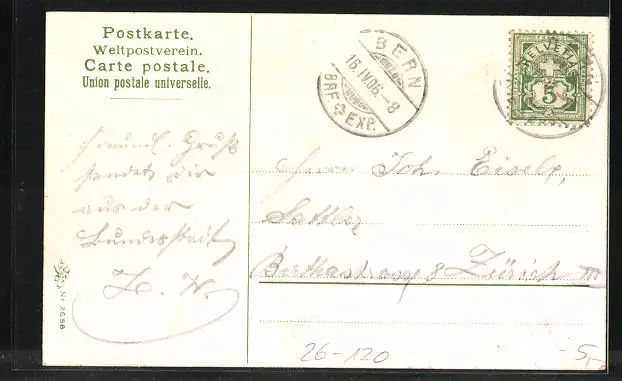 Postkarte.
Weltpostverein.
Carte postale.
Union postale universelle.
BERN
16.IV.06.-8
BRF EXP.
HELVETIA
5
Freundl. Gruß
sendet dir
aus der
Bundesstadt
Herrn Joh.
Sattler
Berthastrasse 8 Zürich III
Nr. 2658
26-120
-5,-